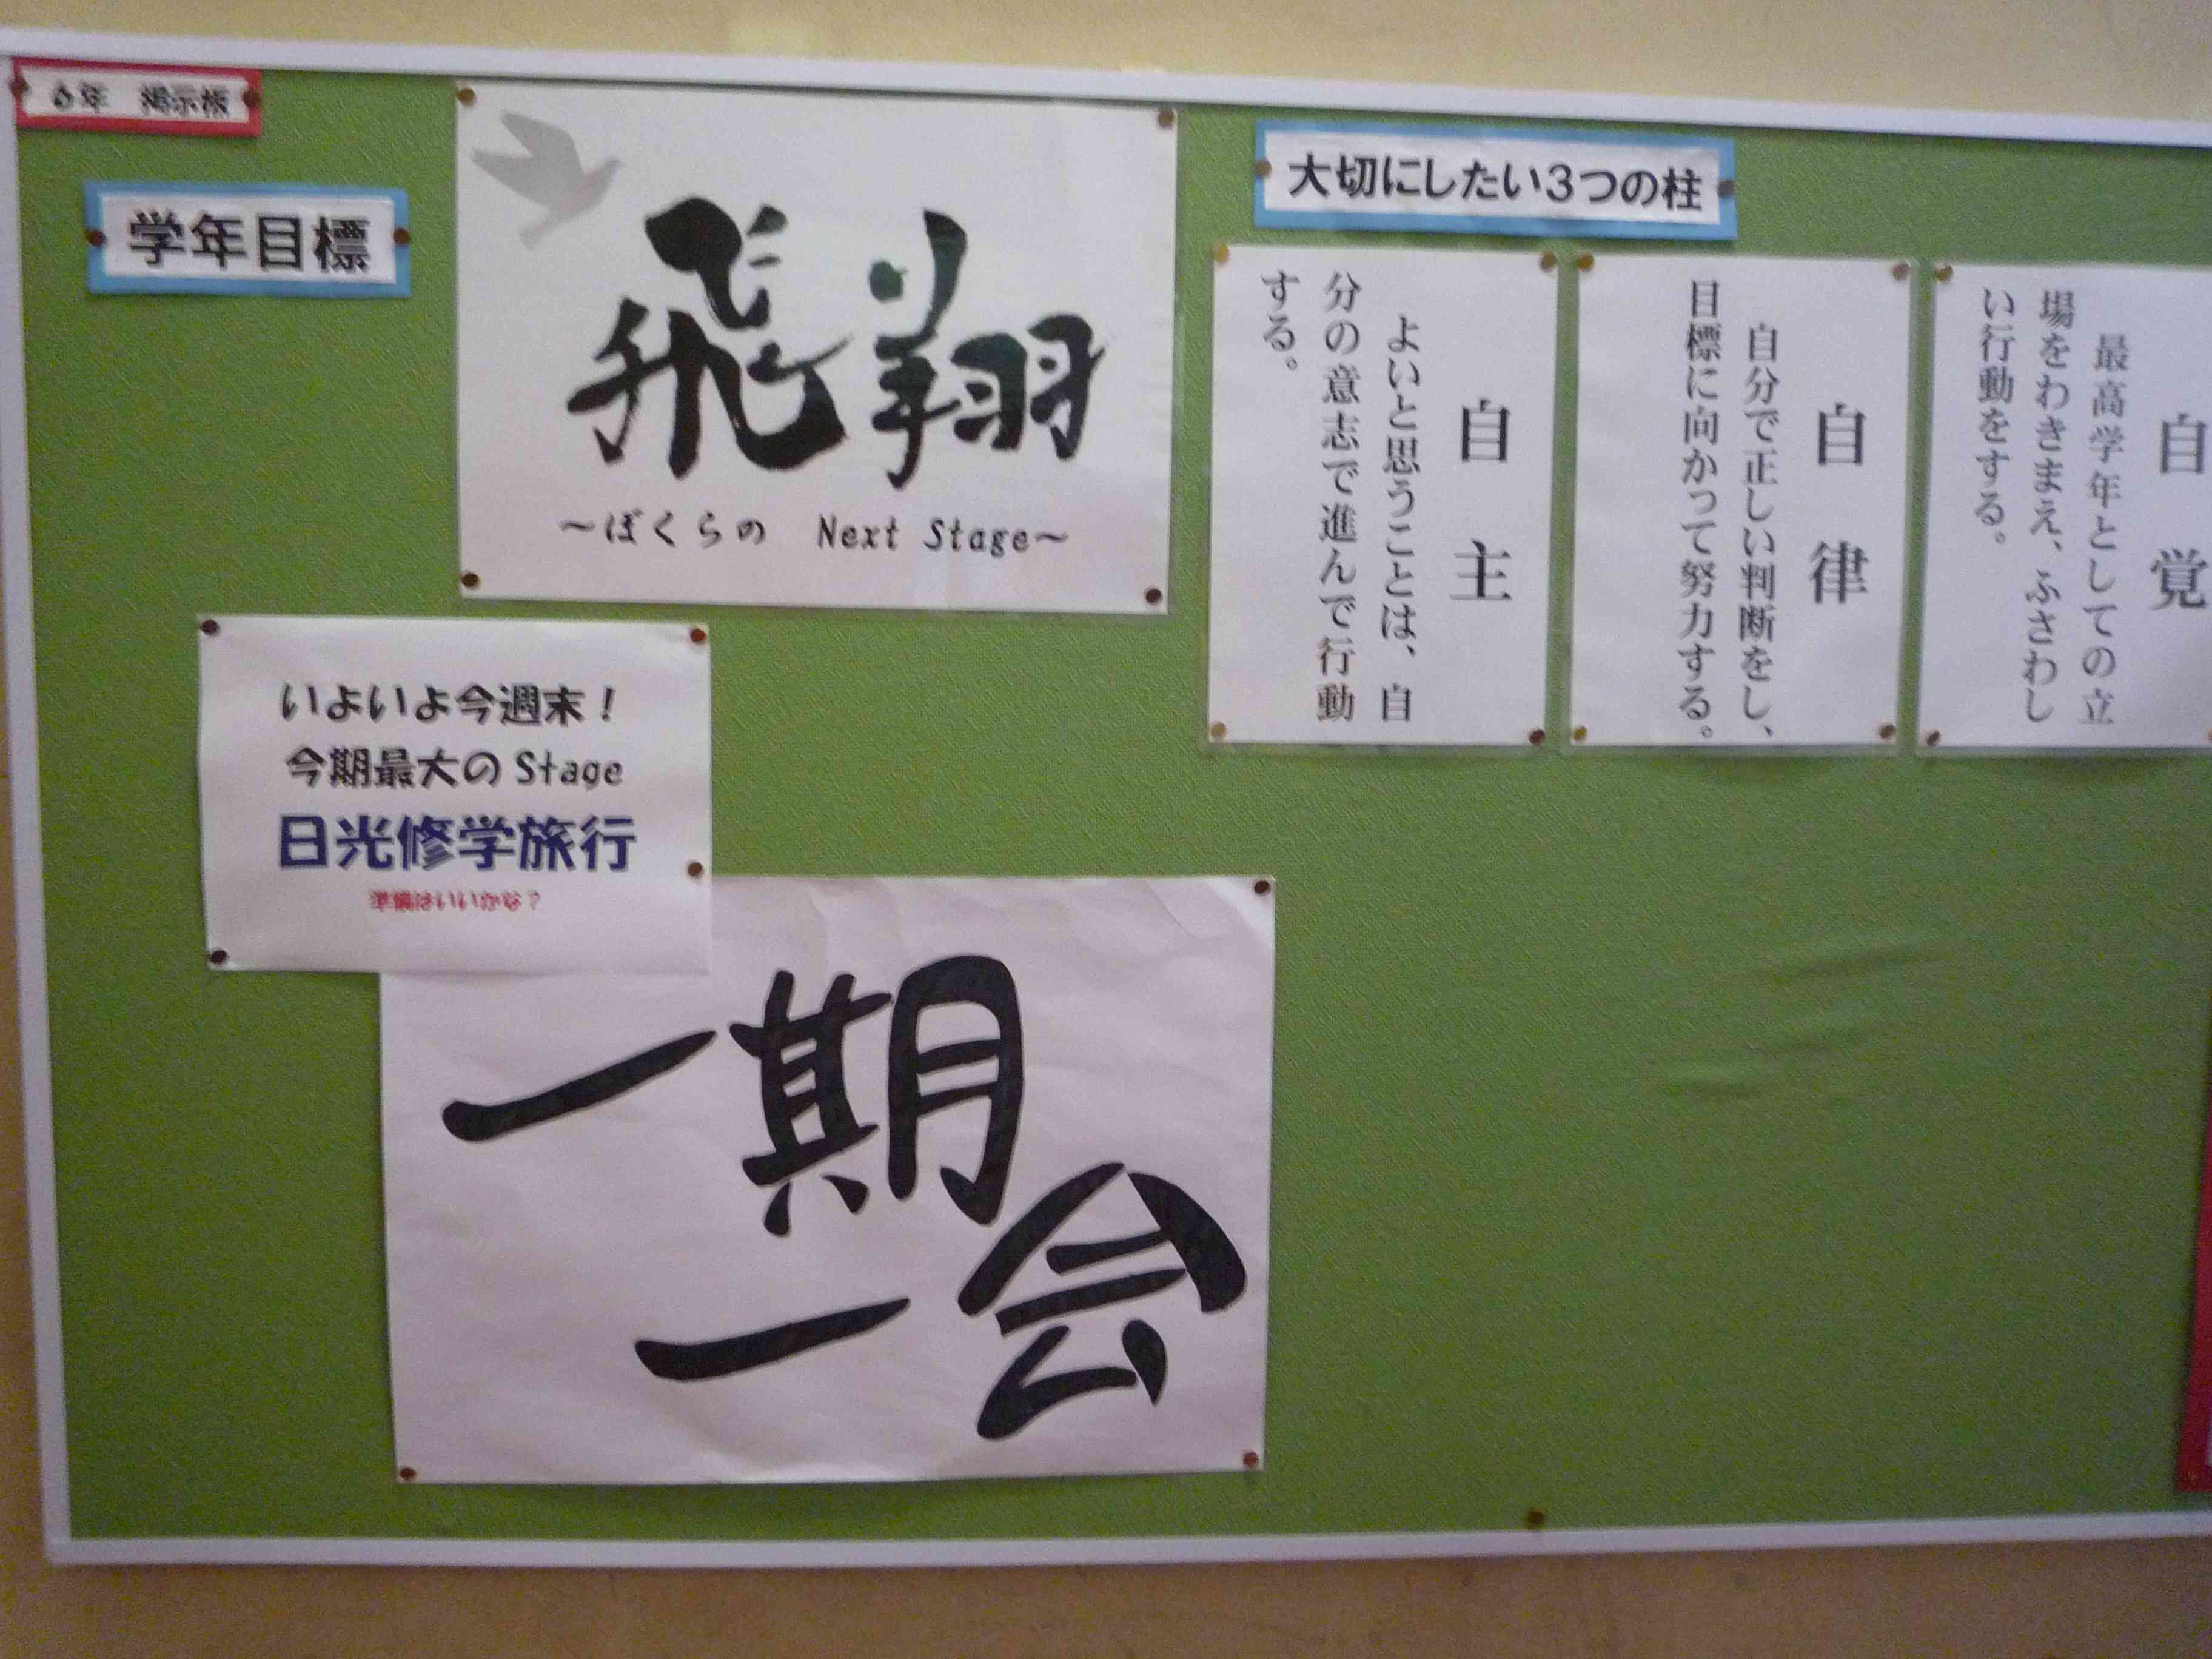 6年 掲示板
学年目標
飛翔
～ぼくらの Next Stage～
大切にしたい3つの柱
自覚
最高学年としての立
場をわきまえ、ふさわし
い行動をする。
自律
自分で正しい判断をし、
目標に向かって努力する。
自主
よいと思うことは、自
分の意志で進んで行動
する。
いよいよ今週末！
今期最大の Stage
日光修学旅行
準備はいいかな？
一期
一会